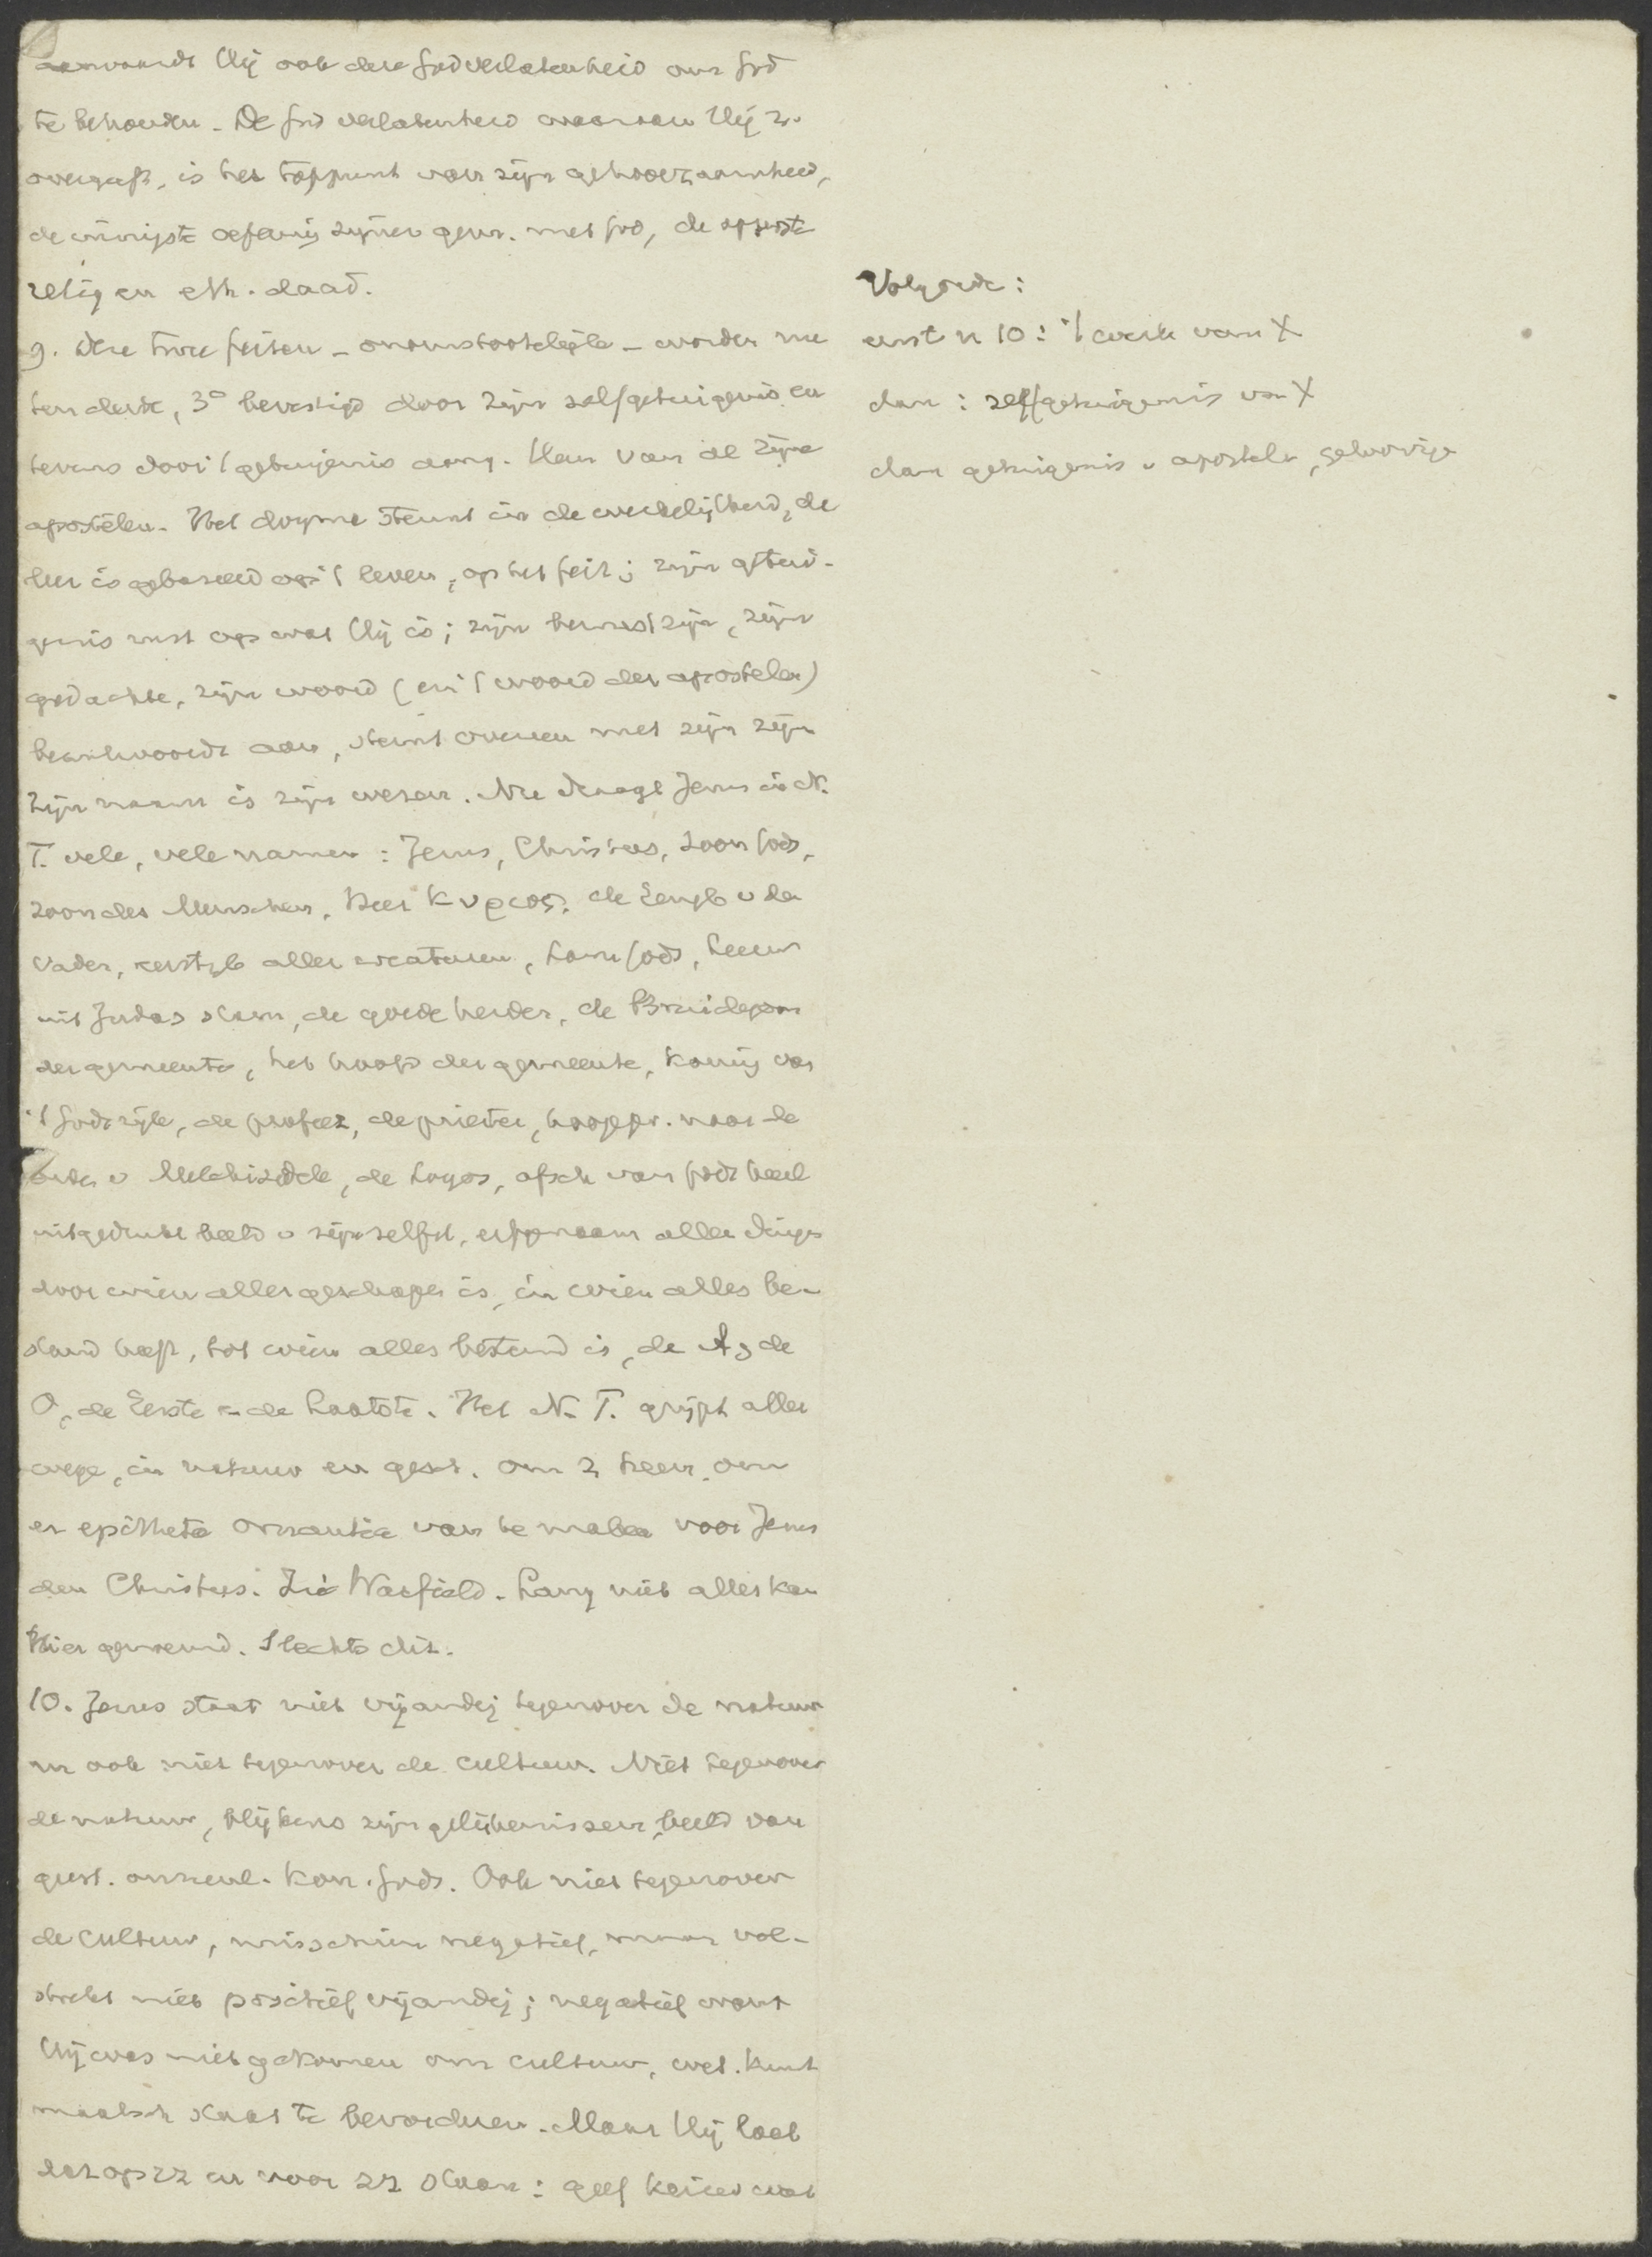 aanvaardt Hij ook deze Godverlatenheid om God
te behouden. De God verlatenheid waaraan Hij z.
overgaf, is het toppunt van zijn gehoorzaamheid,
de innigste oefening zijner gem. met God, de opperste
relig en eth. daad.
9. Deze twee feiten – onomstootelijke – worden nu
ten derde, 3° bevestigd door zijn zelfgetuigenis en
tevens door 't getuigenis aang. Hem van al zijne
apostelen. Het dogma steunt in de werkelijkheid, de
leer is gebaseerd op 't leven, op het feit; zijn getui-
genis rust op wat Hij is; zijn bewustzijn, zijn
gedachte, zijn woord (en 't woord der apostelen)
beantwoordt aan, stemt overeen met zijn zijn
Zijn naam is zijn wezen. Nu draagt Jezus in N.
T. vele, vele namen: Jezus, Christus, Zoon Gods,
zoon des Menschen, Heer Κυριος, de Eengb v den
Vader, eerstgb aller creaturen, Lam Gods, Leeuw
uit Judas stam, de goede herder, de Bruidegom
der gemeente, het hoofd der gemeente, koning van
't Godsrijk, de profeet, de priester, hoogepr. naar de
orden v Melchizedek, de Logos, afsch van Gods heerl
uitgedrukt beeld v zijn zelfst, erfgenaam aller dingen
door wien alles geschapen is, in wien alles be-
stand heeft, tot wien alles bestemd is, de A, de
O, de Eerste en de Laatste. Het N. T. grijpt aller
wege, in natuur en gesch. om z heen, om
er epitheta ornantia van te maken voor Jezus
den Christus. Zie Warfield. Lang niet alles kan
hier genoemd. Slechts dit.
10. Jezus staat niet vijandig tegenover de natuur
en ook niet tegenover de cultuur. Niet tegenover
de natuur, blijkens zijn gelijkenissen, beeld van
geest. onzienl. Kon. Gods. Ook niet tegenover
de cultuur, misschien negatief, maar vol-
strekt niet positief vijandig; negatief want
Hij was niet gekomen om cultuur, wet. kunst
maatsch staat te bevorderen. Maar Hij laat
dat op zz en voor zz staan: geef keizer wat
Volgorde:
eerst n 10: 't werk van X
dan: zelfgetuigenis van X
dan getuigenis v apostelen, geloovige